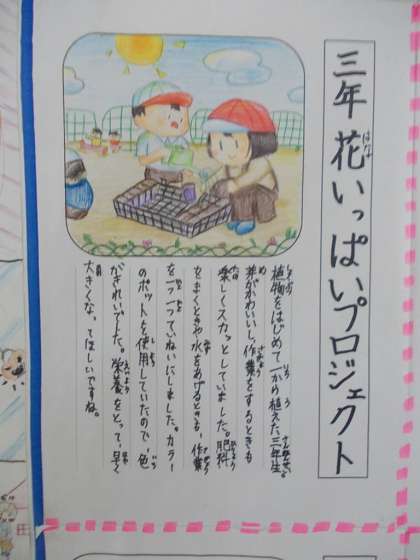 三年 花いっぱいプロジェクト
植物をはじめて一から植えた三年生。
芽がかわいいし、作業をするときも
楽しくスカッとしていました。肥料
をまくときや水をあげるときも、作業
を一つ一つていねいにしました。カラー
のポットも使用していたので、色
がきれいでした。栄養をとって、早く
大きくなってほしいですね。